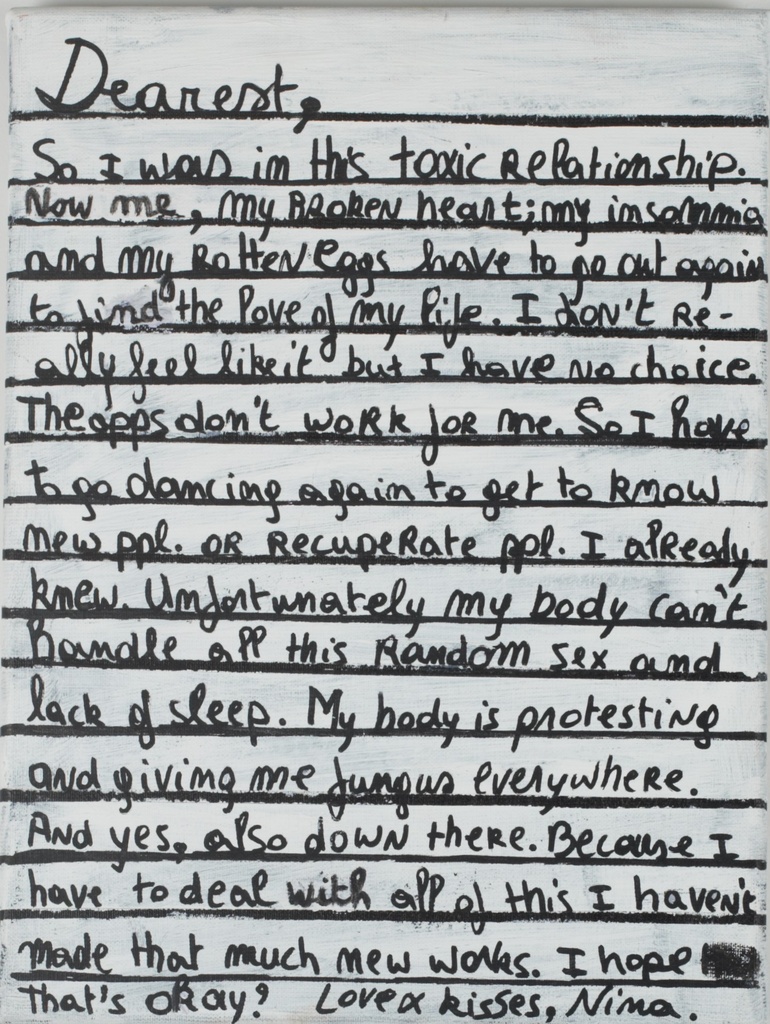 Dearest,
So I was in this toxic Relationship.
Now me, my BROKEN heart; my insomnia
and my Rotten eggs have to go out again
to find the love of my life. I don't Re-
ally feel like it but I have no choice.
The apps don't work for me. So I have
to go dancing again to get to know
new ppl. or Recuperate ppl. I already
knew. Unfortunately my body can't
handle all this Random sex and
lack of sleep. My body is protesting
and giving me fungus everywhere.
And yes, also down there. Because I
have to deal with all of this I haven't
made that much new works. I hope
that's okay? Love x kisses, Nina.